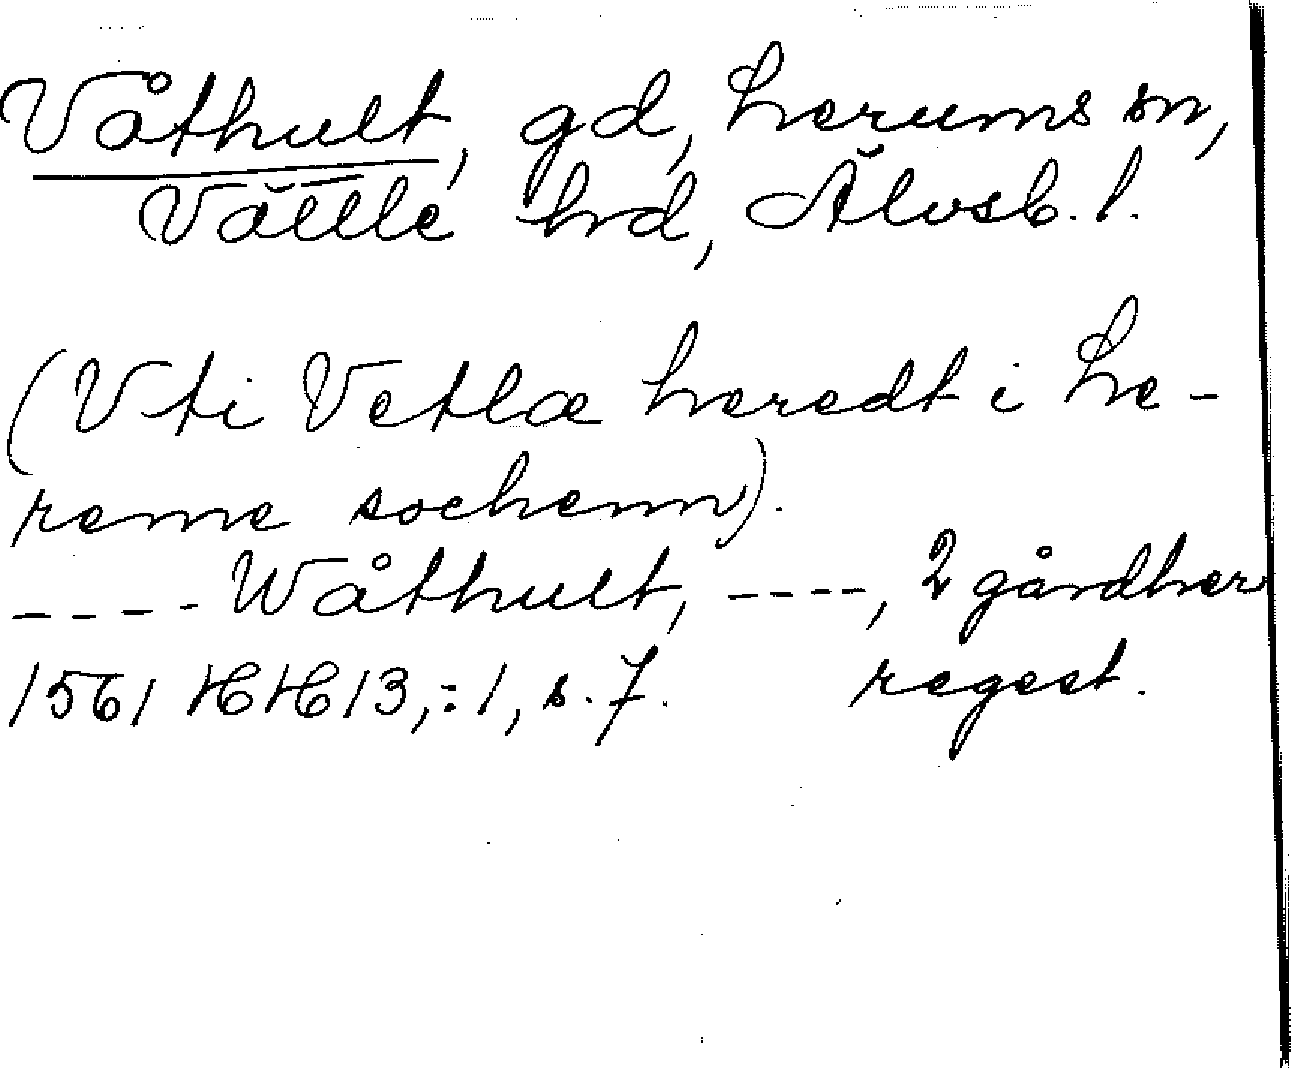 Våthult, gd, Lerums sn,
Vättle hd, Älvsb. l.
(Vti Vetlæ heredt i Le-
reme sochenn).
---- Wåthult, ----, 2 gårdher
1561 HH 13,:1, s. 7. regest.